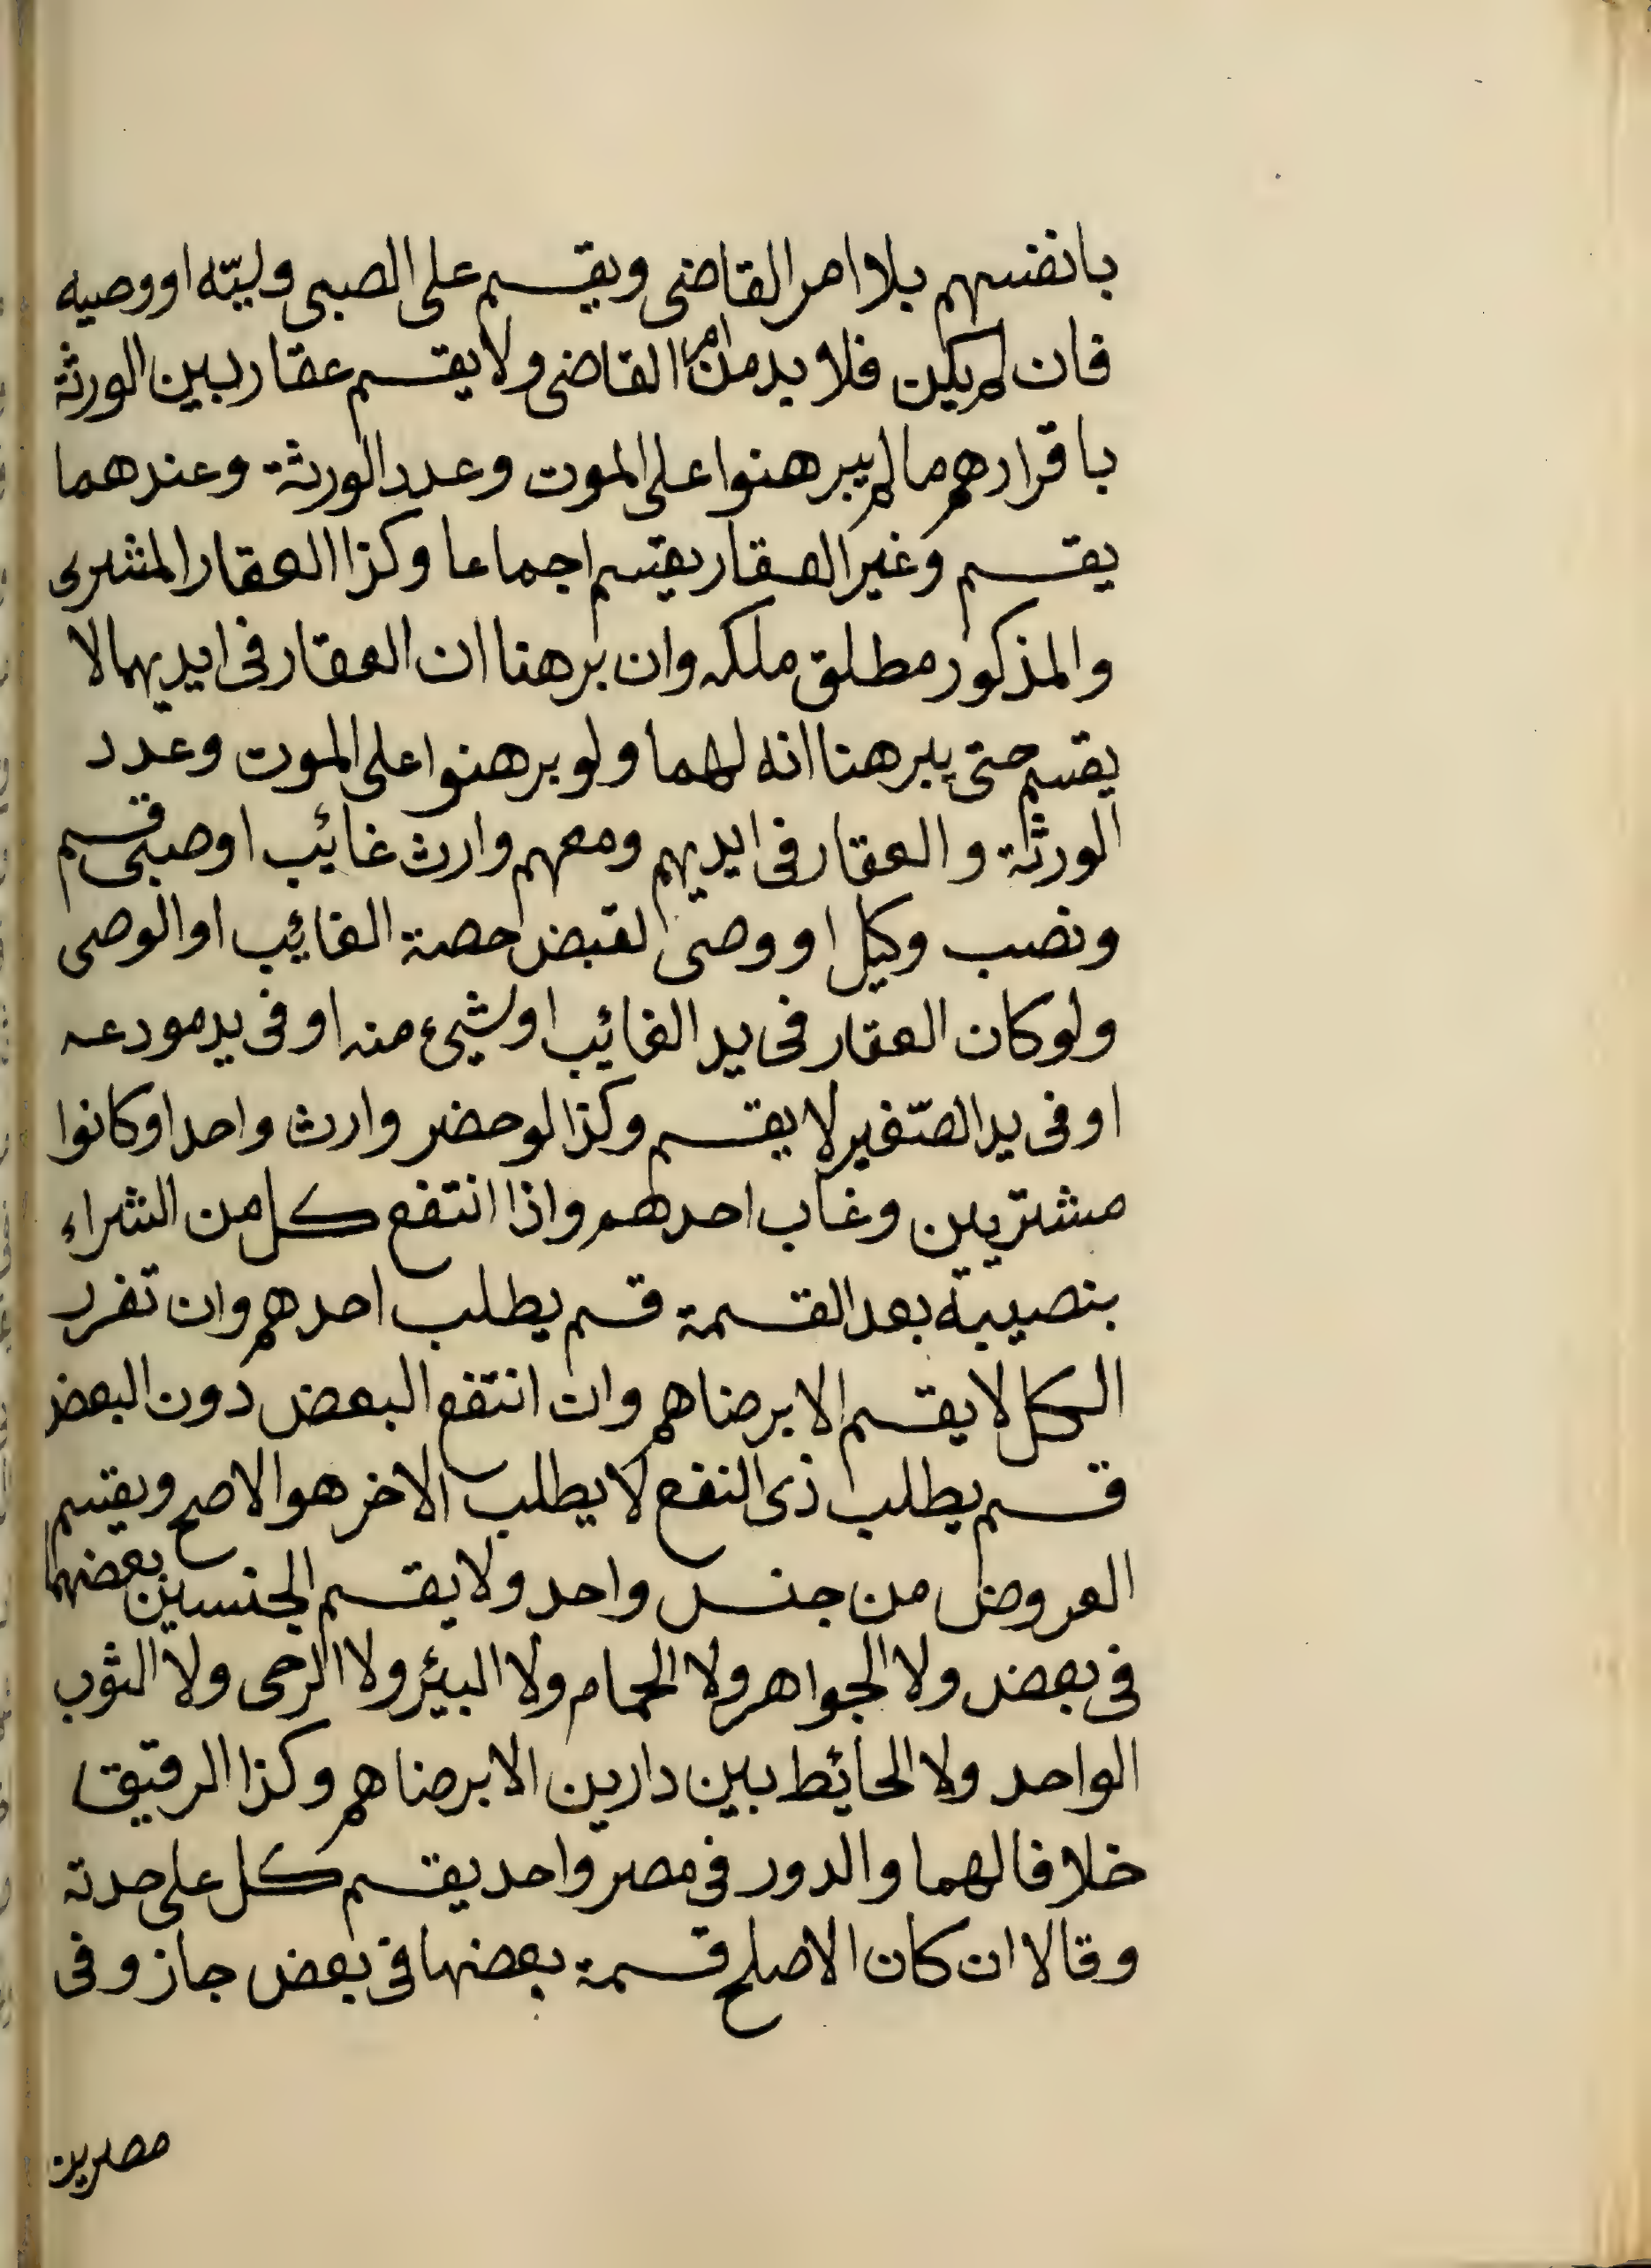 بانفسهم بلا امر القاضى ويقسم على الصبى وليّه او وصيه
فان لم يكن فلا بد من امر القاضى ولا يقسم عقار بين الورثة
باقرارهم ما لم يبرهنوا على الموت وعدد الورثة وعندهما
يقسم وغير العقار يقسم اجماعا وكذا العقار المشرى
والمذكور مطلق ملكه وان برهنا ان العقار فى ايديهما لا
يقسم حتى يبرهنا انه لهما ولو برهنوا على الموت وعدد
الورثة والعقار فى ايديهم ومعهم وارث غائب او صبى قسم
ونصب وكيل او وصى لقبض حصة الغائب او الوصى
ولو كان العقار فى يد الغائب او شيئ منه او فى يد مودعه
او فى يد الصّغير لا يقسم وكذا لو حضر وارث واحد او كانوا
مشتريين وغاب احدهم واذا انتفع كل من الشراء
بنصيبه بعد القسمة قسم يطلب احدهم وان تفرد
الكل لا يقسم الا برضاهم وان انتفع البعض دون البعض
قسم يطلب ذى النفع لا يطلب الاخر هو الاصح ويقسم
العروض من جنس واحد ولا يقسم الجنسين بعضهما
فى بعض ولا الجواهر ولا الحمام ولا البئر ولا الرحى ولا الثوب
الواحد ولا الحائط بين دارين الا برضاهم وكذا الرقيق
خلافا لهما والدور فى مصر واحد يقسم كل على حدته
وقالا ان كان الاصلح قسمة بعضها فى بعض جاز وفى
مصرين